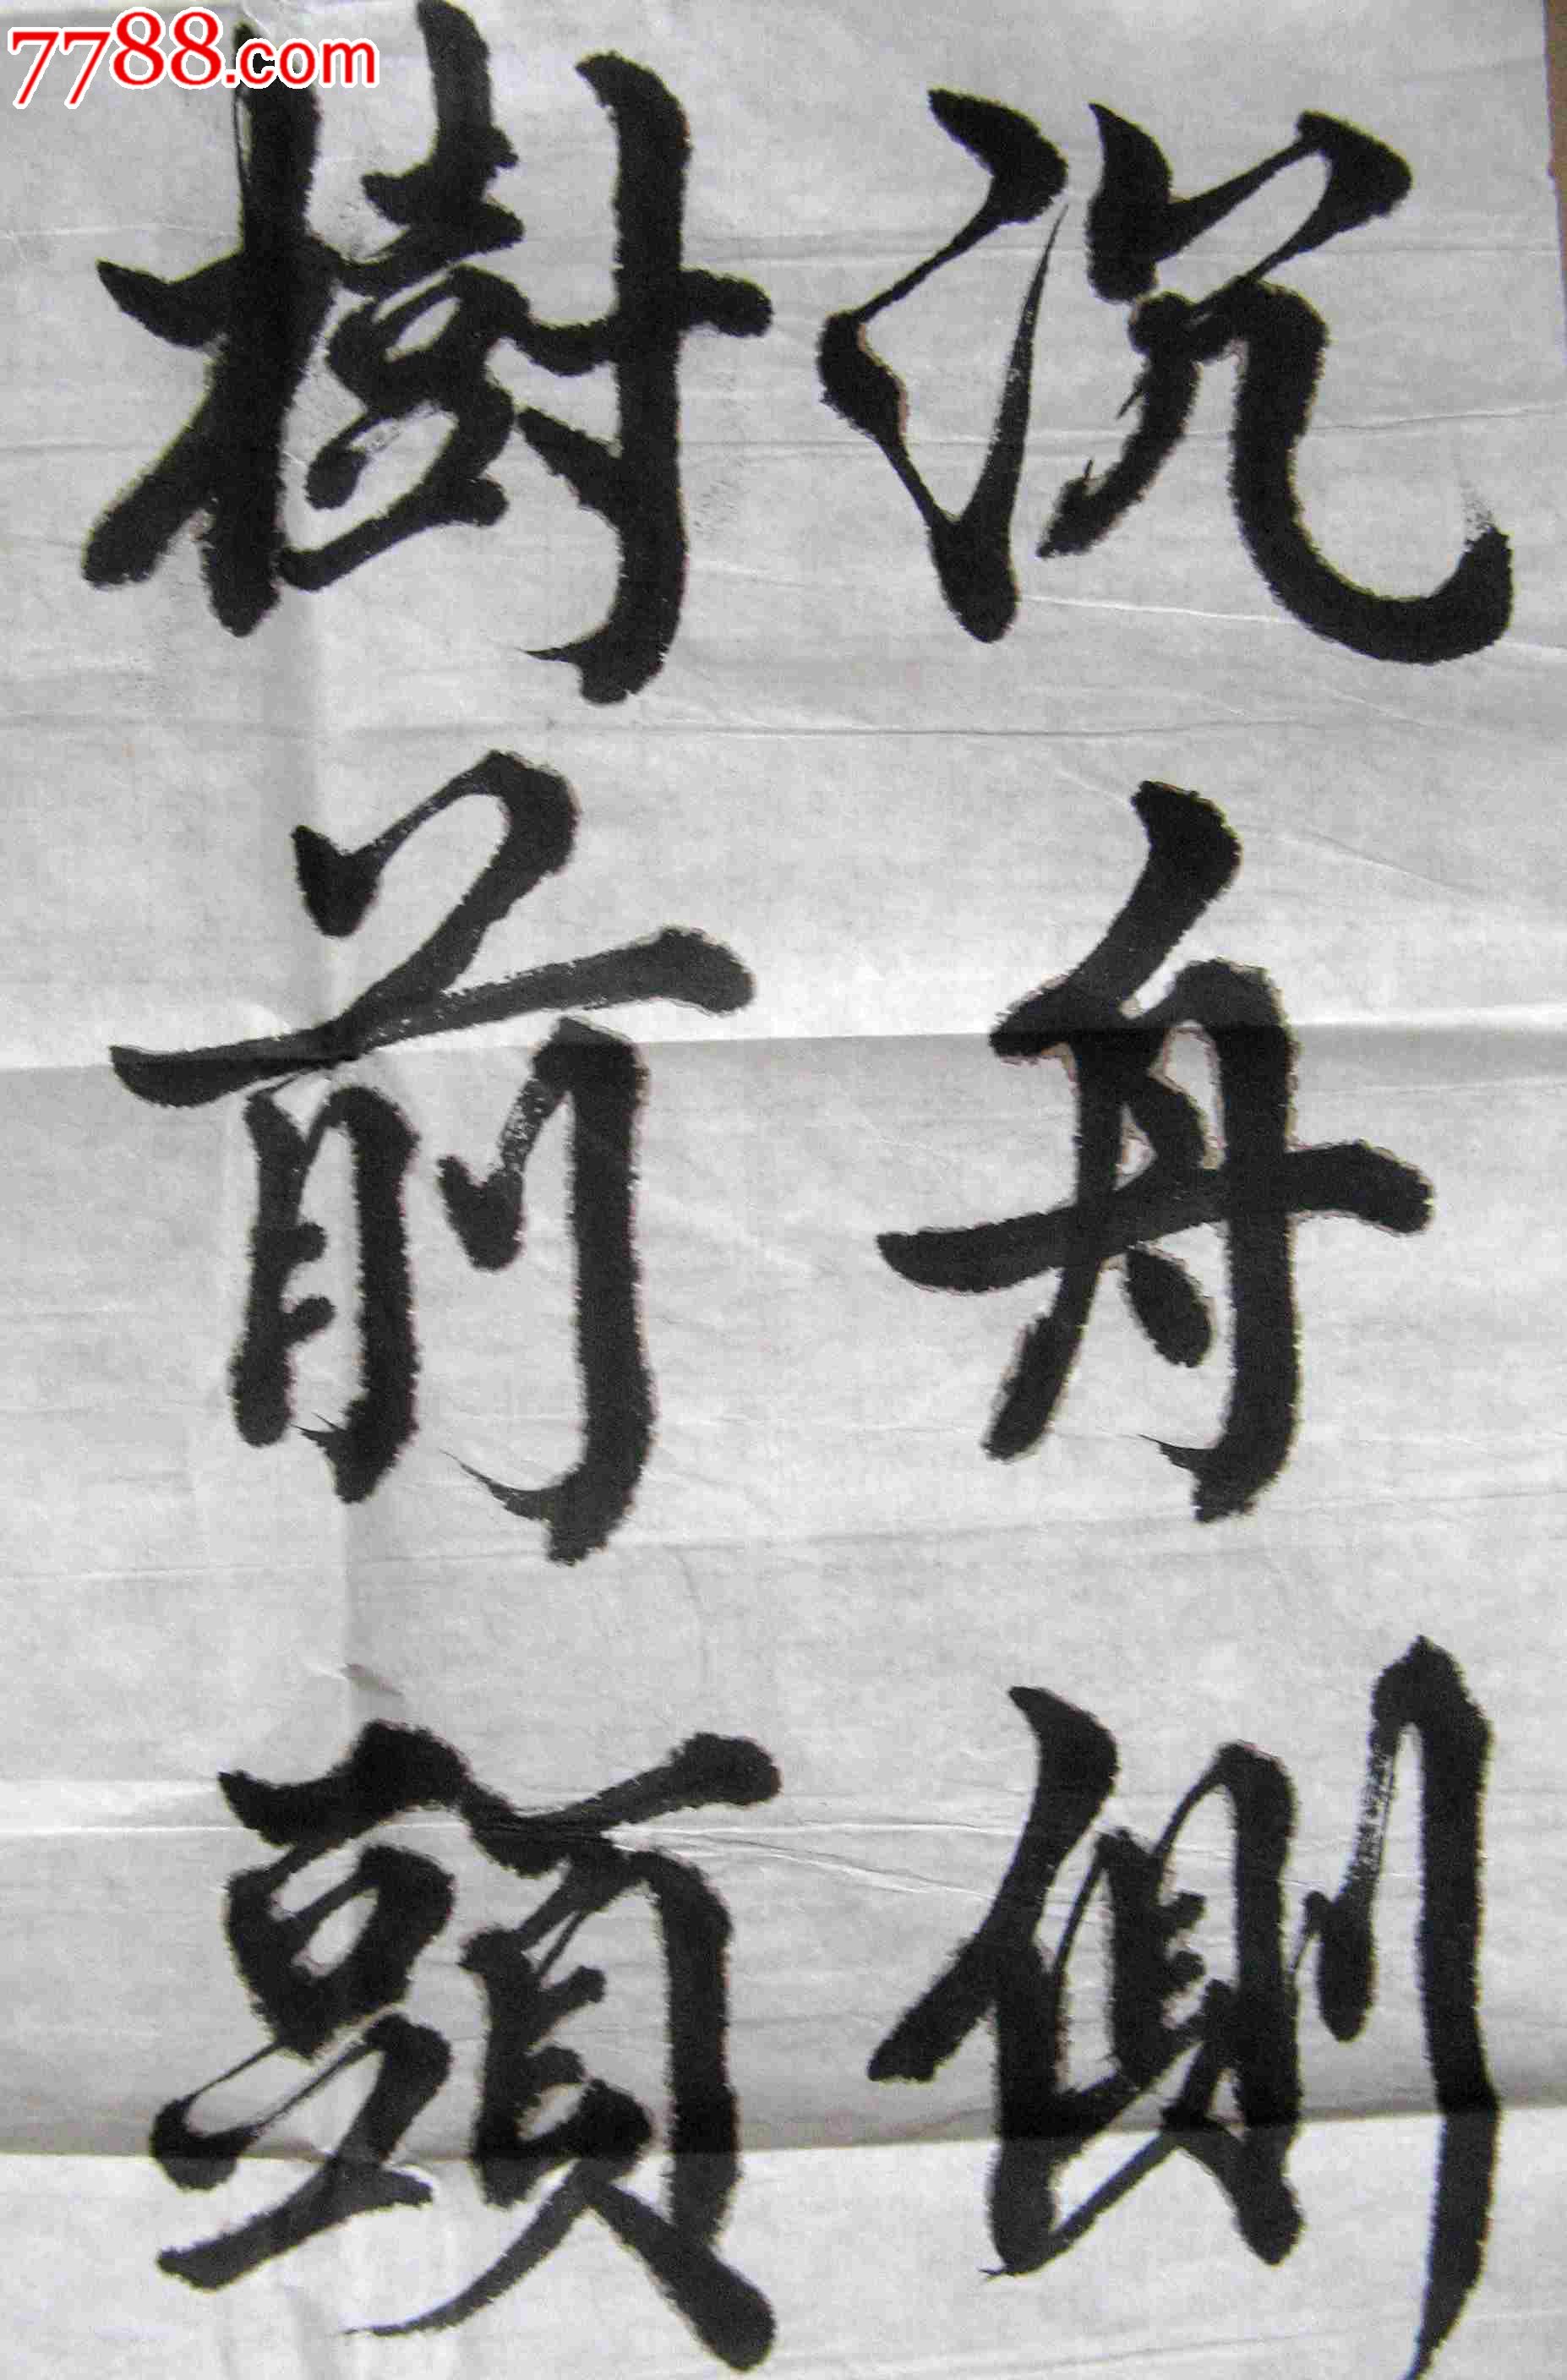 7788.com
沉舟側
樹前頭